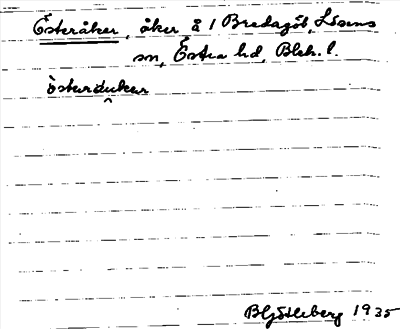 Österåker, åker å 1 Bredagöl, Lösens
sn, Östra hd, Blek. l.
österåukar
B Göthberg 1935